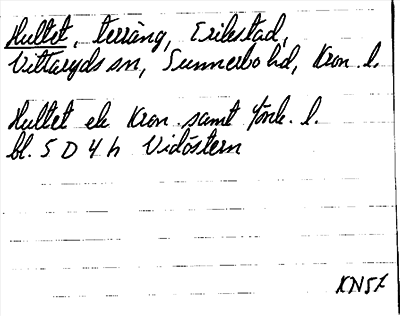 Hultet, terräng, Erikstad,
Vittaryds sn, Sunnerbo hd, Kron. l.
Hultet ek Kron. samt Jönk. l.
bl. 5 D 4 h Vidöstern
KN57